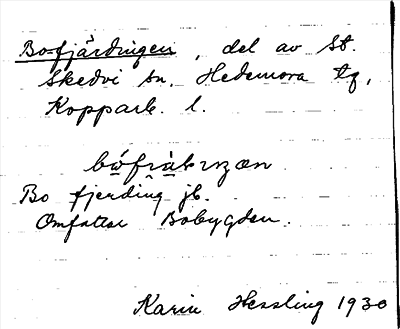 Bofjärdingen, del av St.
Skedvi sn, Hedemora tg,
Kopparb. l.
Bo fjerding jb.
Omfattar Bobygden.
Karin Hessling 1930